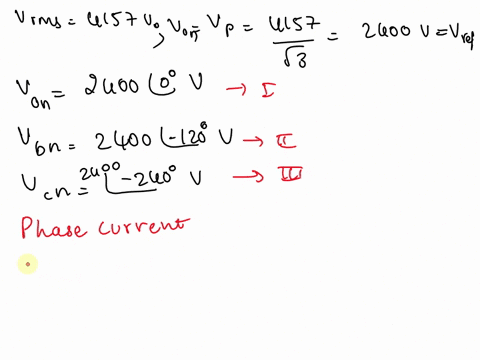 Vrms = 4157 V, Von = Vp = 4157/√3 = 2400 V = Vref
Von = 2400 ∠0° V → I
Vbn = 2400 ∠-120° V → II
Vcn = 2400 ∠-240° V → III
Phase current